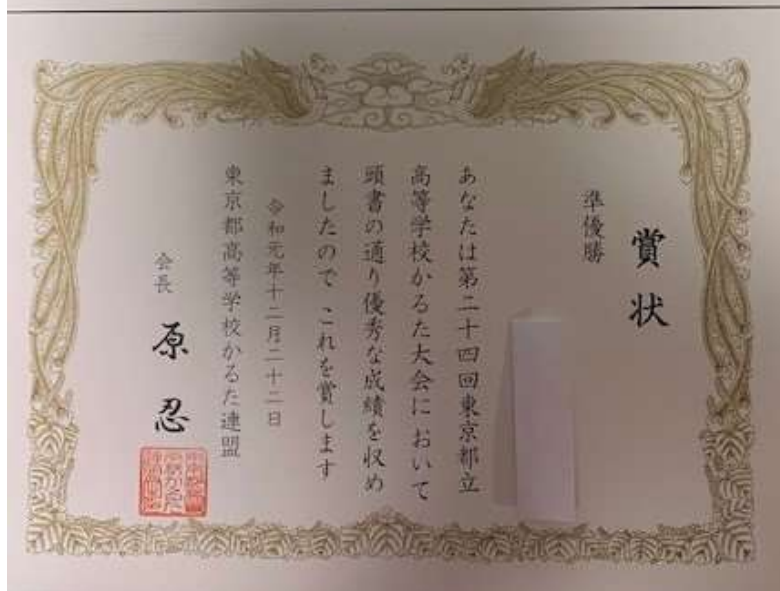 賞状
準優勝
あなたは第二十四回東京都立
高等学校かるた大会において
頭書の通り優秀な成績を収め
ましたので これを賞します
令和元年十二月二十二日
東京都高等学校かるた連盟
会長 原 忍